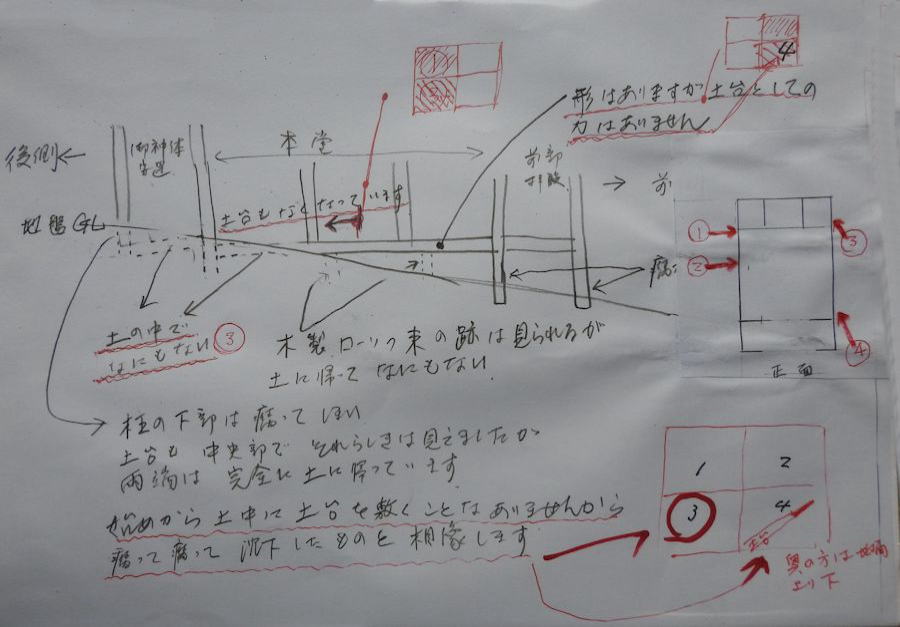 形はありますが土台としての
力はありません
4
後側
本堂
前部
前
地盤GL
土台もなくなっています
①
②
③
④
腐
土の中で
なにもない ③
木製ローソク束の跡は見られるが
土に帰ってなにもない
正面
柱の下部は腐ってしまい
土台も中央部でそれらしきは見えましたが
両端は完全に土に帰っています
始めから土中に土台を敷くことなありませんから
腐って腐って沉下したものと相像します
1 2
3 4
土台
奥の方は地面
より下